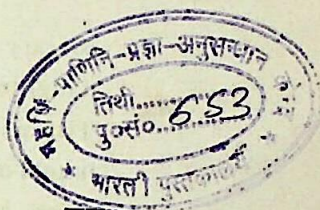 पाणिनि-प्रज्ञा-अनुसन्धान
तिथी..............
पु०सं०..............653
* भारती पुस्तकालय *